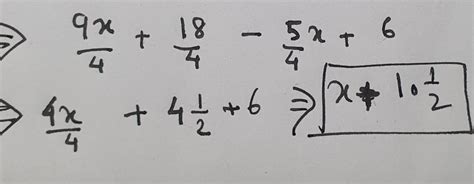 ⇒ 9x/4 + 18/4 - 5/4 x + 6
⇒ 4x/4 + 4 1/2 + 6 ⇒ x + 10 1/2